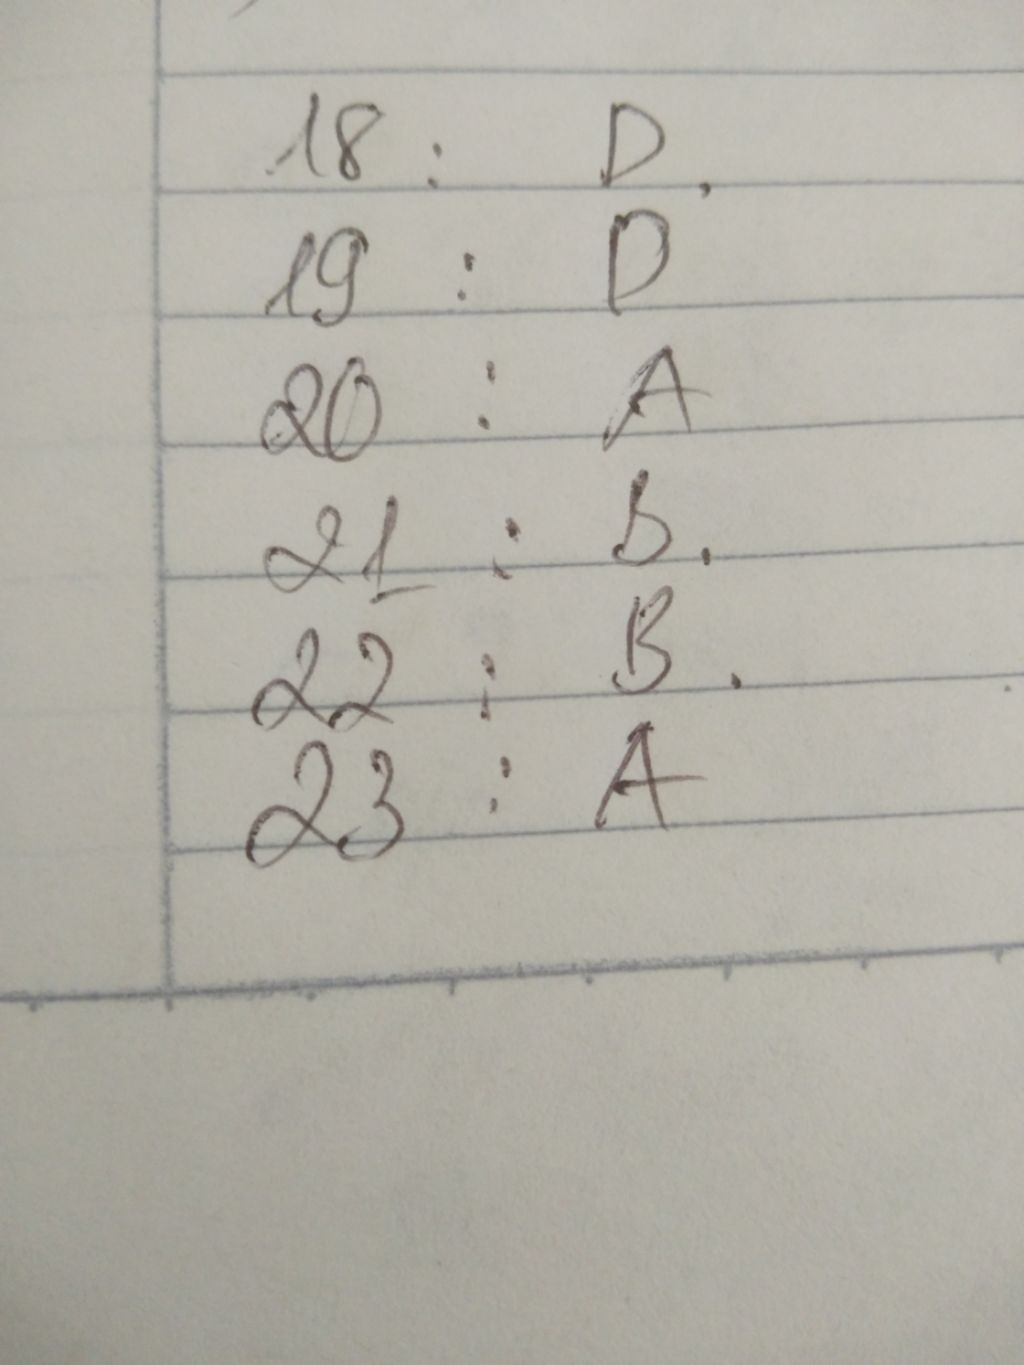 18 : D.
19 : D
20 : A
21 : B.
22 : B.
23 : A